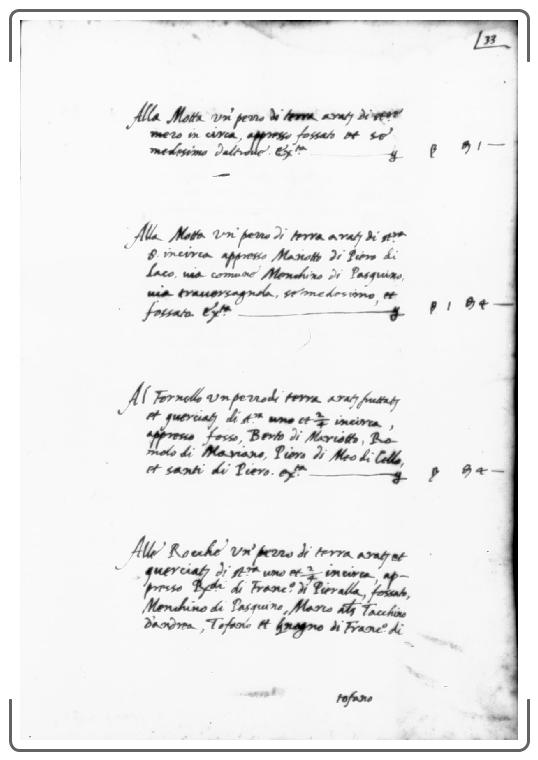 33
Alla Motta un' pezzo di terra arat; di
mezo in circa, appresso fossato et se
medesimo daltroue. &x.ta
Alla Motta un' pezzo di terra arat; di st.ra
8. incirca appresso Mariotto di Piero di
Iaco, uia comune Menchino di Pasquino,
uia trauersagnola, se' medesimo, et
fossato &x.ta
Al Fornello un pezzo di terra arat; fruttat;
et querciat; di st.ra uno et 2/4 incirca,
appresso fosso, Berto di Mariotto, Ro
molo di Mariano, Piero di Meo di Cello,
et santi di Piero. &x.ta
Alle Rocche un' pezzo di terra arat; et
querciat; di st.ra uno et 2/4 incirca, ap-
presso di Franc.o di Pieralla, fossato,
Menchino di Pasquino, Marco Tacchino
d'andrea, Tofano et di Franc.o di
tofano